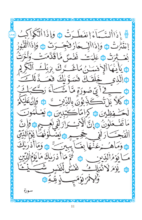 إِذَا السَّمَاءُ انفَطَرَتْ ۝ وَإِذَا الْكَوَاكِبُ
انتَثَرَتْ ۝ وَإِذَا الْبِحَارُ فُجِّرَتْ ۝ وَإِذَا الْقُبُورُ
بُعْثِرَتْ ۝ عَلِمَتْ نَفْسٌ مَا قَدَّمَتْ وَأَخَّرَتْ
۝ يَا أَيُّهَا الْإِنسَانُ مَا غَرَّكَ بِرَبِّكَ الْكَرِيمِ
۝ الَّذِي خَلَقَكَ فَسَوَّاكَ فَعَدَلَكَ
۝ فِي أَيِّ صُورَةٍ مَا شَاءَ رَكَّبَكَ
۝ كَلَّا بَلْ تُكَذِّبُونَ بِالدِّينِ ۝ وَإِنَّ عَلَيْكُمْ
لَحَافِظِينَ ۝ كِرَامًا كَاتِبِينَ ۝ يَعْلَمُونَ
مَا تَفْعَلُونَ ۝ إِنَّ الْأَبْرَارَ لَفِي نَعِيمٍ ۝ وَإِنَّ
الْفُجَّارَ لَفِي جَحِيمٍ ۝ يَصْلَوْنَهَا يَوْمَ الدِّينِ
۝ وَمَا هُمْ عَنْهَا بِغَائِبِينَ ۝ وَمَا أَدْرَاكَ
مَا يَوْمُ الدِّينِ ۝ ثُمَّ مَا أَدْرَاكَ مَا يَوْمُ الدِّينِ
۝ يَوْمَ لَا تَمْلِكُ نَفْسٌ لِنَفْسٍ شَيْئًا
وَالْأَمْرُ يَوْمَئِذٍ لِلَّهِ ۝